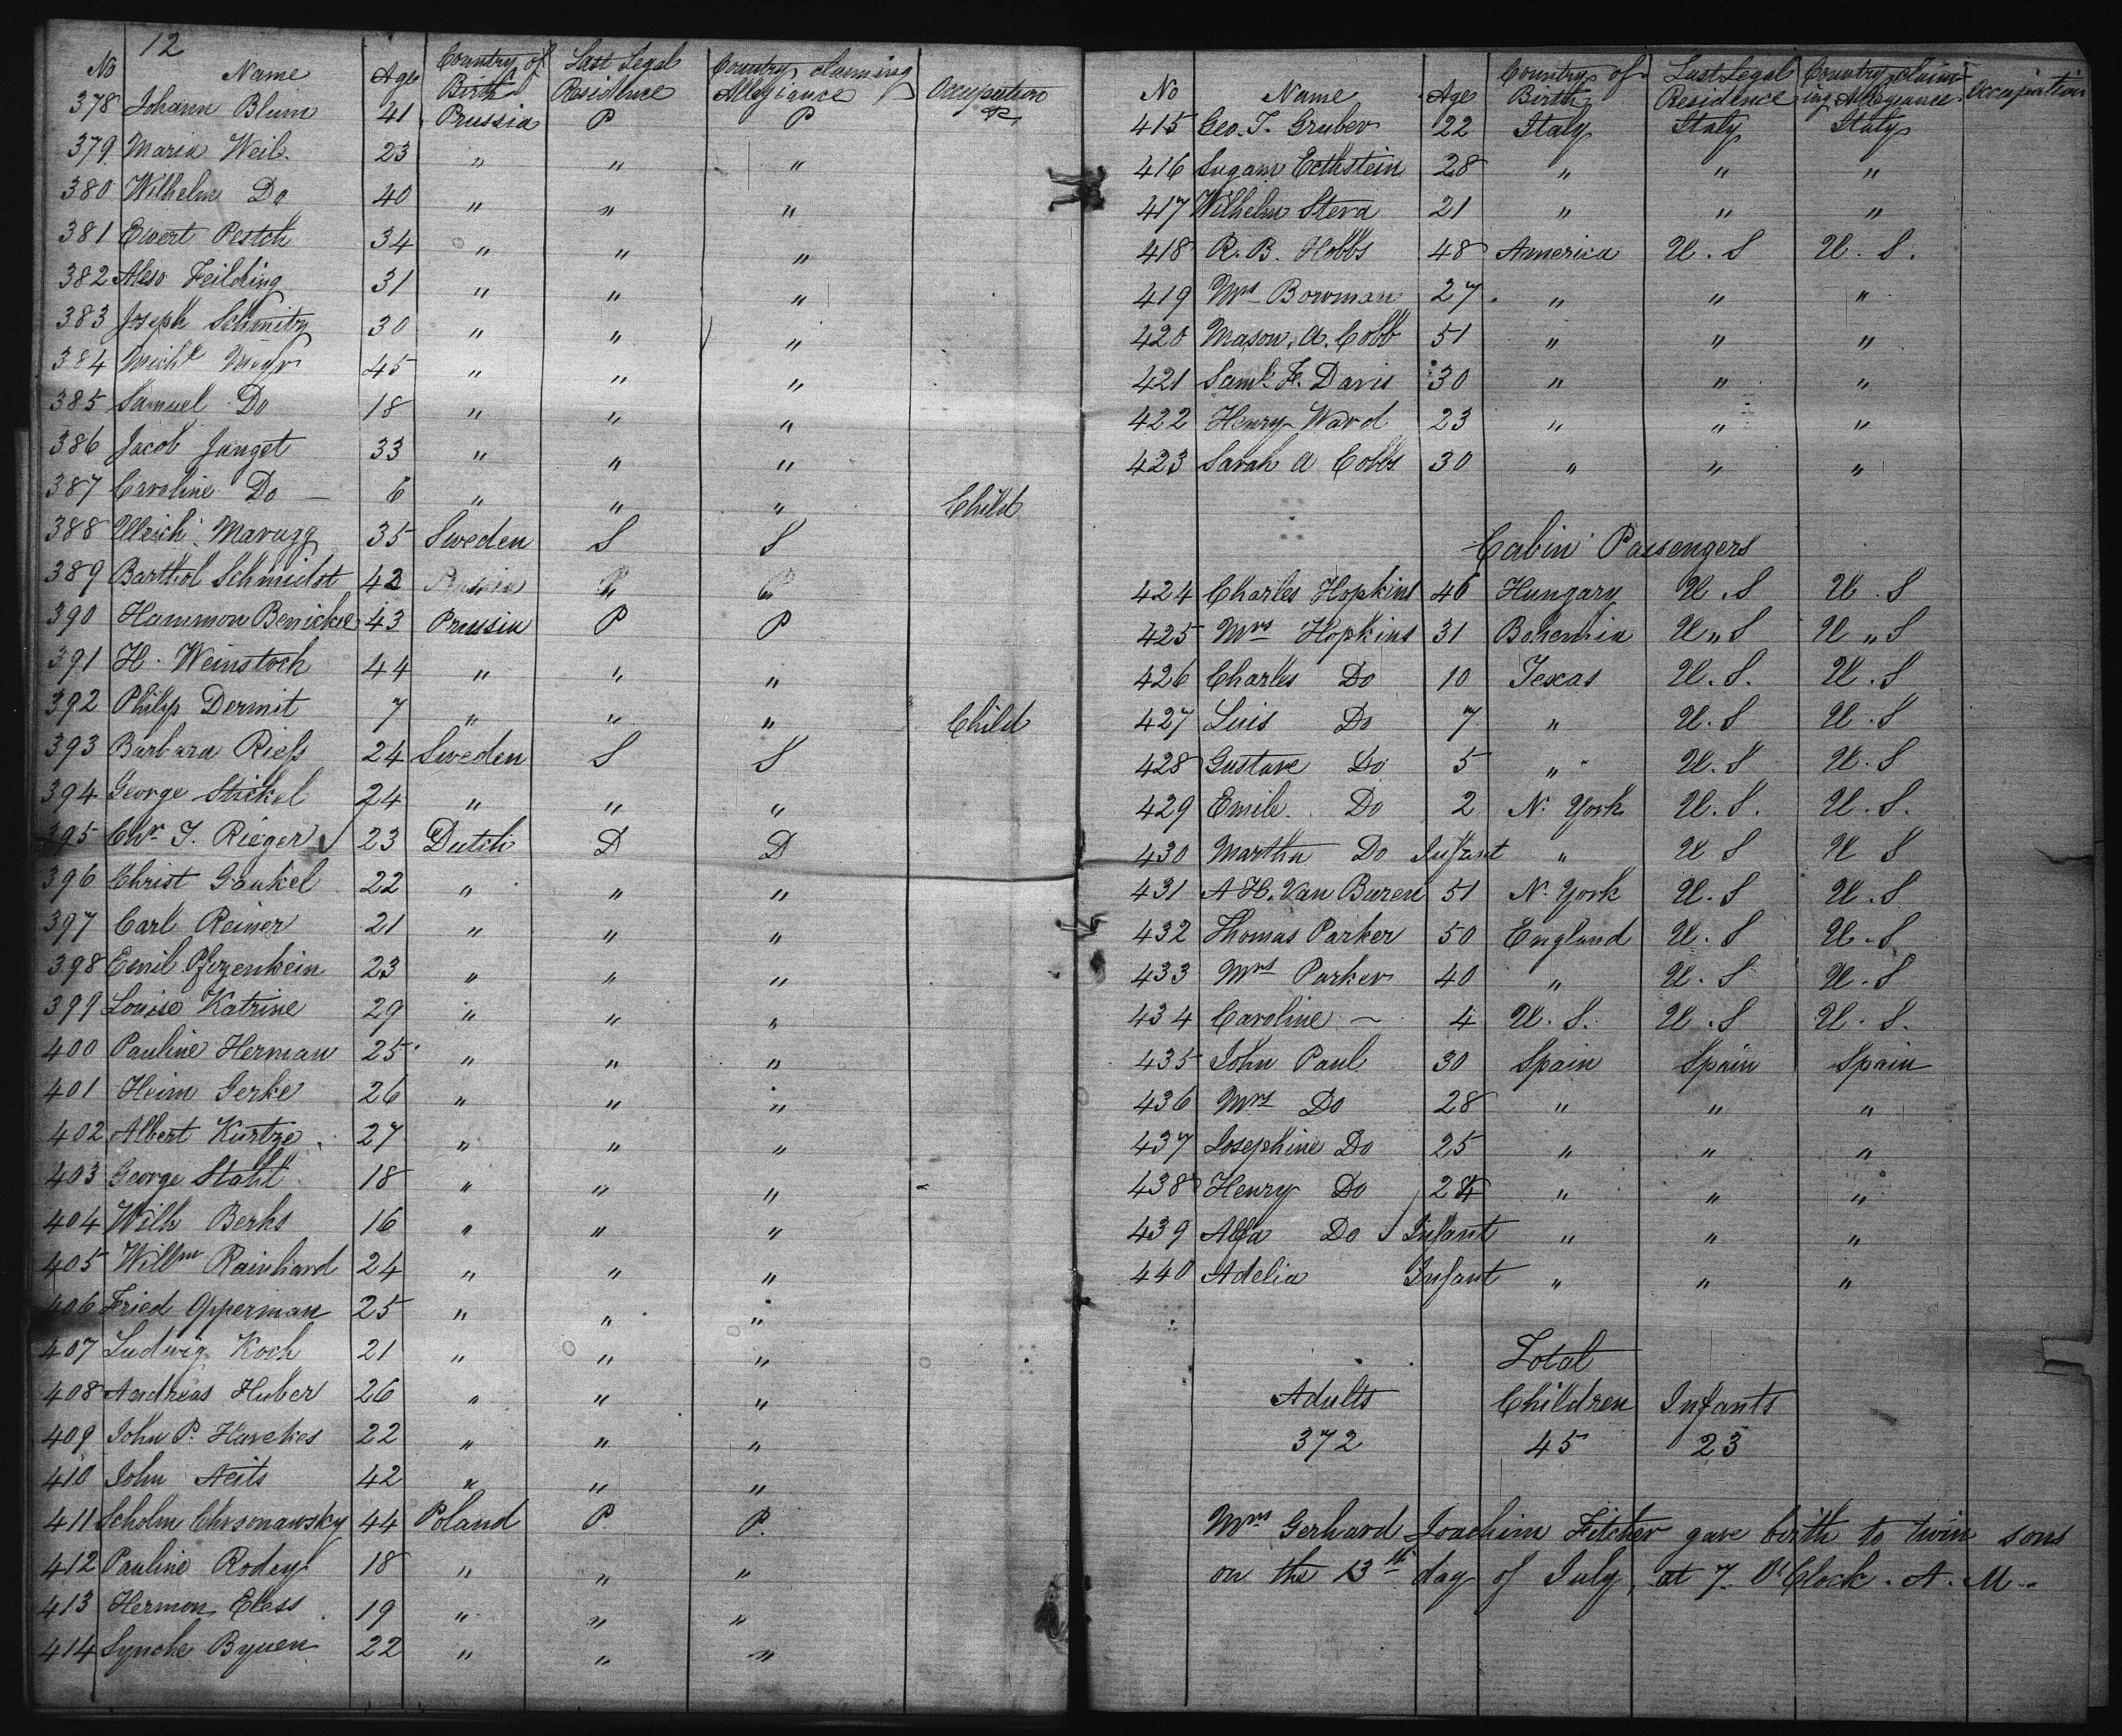 12
No Name Age Country of Birth Last Legal Residence Country claiming Allegiance Occupation &c
378 Johann Blum 41 Prussia P P
379 Maria Weil 23 " " "
380 Wilhelm Do 40 " " "
381 Ewert Pestch 34 " " "
382 Feilding 31 " " "
383 Joseph Schmitz 30 " " "
384 Michl 45 " " "
385 Samuel Do 18 " " "
386 Jacob Junget 33 " " "
387 Caroline Do — 6 " " " Child
388 Ulrich Marugg 35 Sweden S S
389 Barthol Schmidt 42
390 Hammon Benicke 43 Prussia P P
391 H. Weinstock 44 " " "
392 Philip Dermit 7 " " " Child
393 Barbara Riess 24 Sweden S S
394 George Stickel 24 " " "
395 Chr. J. Rieger 23 Dutch D D
396 Christ Gaukel 22 " " "
397 Carl Reiner 21 " " "
398 Emil 23 " " "
399 Louise Katrine 29 " " "
400 Pauline Herman 25 " " "
401 Heim Gerke 26 " " "
402 Albert Kurtze 27 " " "
403 George Stahl 18 " " "
404 Wilh Berks 16 " " "
405 Willm Rainhard 24 " " "
406 Fried Opperman 25 " " "
407 Ludwig Koch 21 " " "
408 Andreas Huber 26 " " "
409 John P. Harckes 22 " " "
410 John Neits 42 " " "
411 Scholm Chrsonawsky 44 Poland P. P.
412 Pauline Rodey 18 " " "
413 Hermon Eless 19 " " "
414 Synche Byuen 22 " " "
No Name Age Country of Birth Last Legal Residence Country claiming Allegiance Occupation
415 Geo. J. Gruber 22 Italy Italy Italy
416 Ecthstein 28 " " "
417 Wilhelm Stera 21 " " "
418 R. B. Hobbs 48 America U. S U. S.
419 Mrs Bowman 27 " " "
420 Mason. A. Cobb 51 " " "
421 Saml. F. Davis 30 " " "
422 Henry Ward 23 " " "
423 Sarah A Cobbs 30 " " "
Cabin Passengers
424 Charles Hopkins 46 Hungary U. S U. S
425 Mrs Hopkins 31 Bohemia U " S U " S
426 Charles Do 10 Texas U. S. U. S
427 Luis Do 7 " U. S U. S
428 Gustave Do 5 " U. S U. S
429 Emile. Do 2 N. York U. S. U. S.
430 Martha Do Infant " U S U S
431 A H. Van Buren 51 N. York U. S U. S
432 Thomas Parker 50 England U. S U. S
433 Mrs Parker 40 " U. S U. S
434 Caroline — 4 U. S. U. S U. S.
435 John Paul 30 Spain Spain Spain
436 Mrs Do 28 " " "
437 Josephine Do 25 " " "
438 Henry Do 24 " " "
439 Alfa Do Infant " " "
440 Adelia Infant " " "
Total
Adults Children Infants
372 45 23
Mrs Gerhard Joachim Fitcher gave birth to twin sons
on the 13th day of July, at 7. O'Clock. A. M.